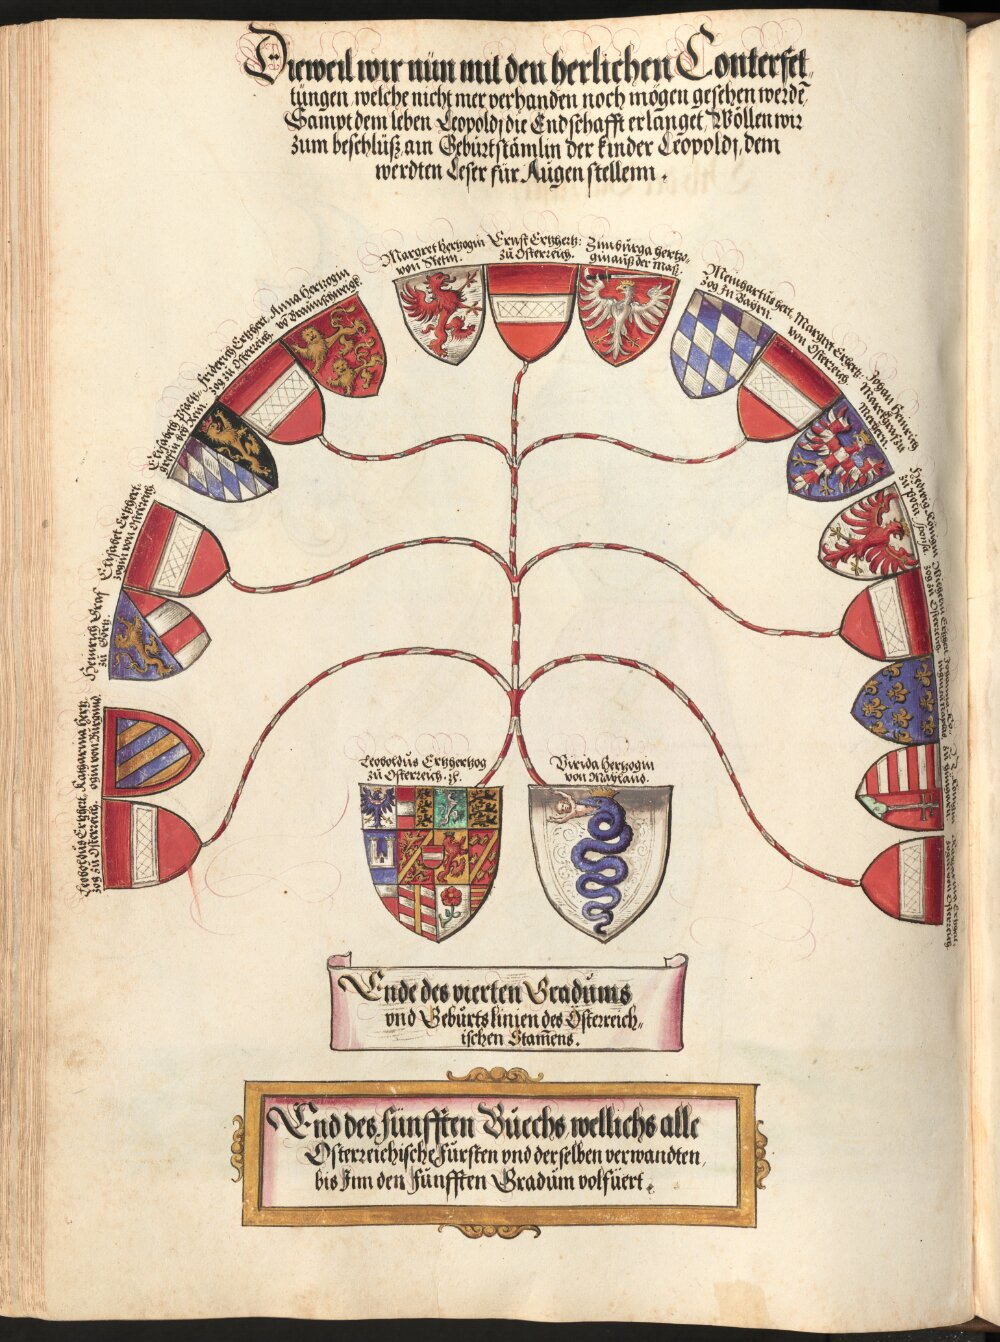 Dieweil wir nün mit den herlichen Conterfet,
tüngen welche nicht mer verhanden noch mögen gesehen werdē,
Sampt dem leben Leopoldj die Endschafft erlanget, Wöllen wir
zum beschlüß ain Gebürtstämlin der kinder Leopoldj, dem
werdten Leser für Augen stellenn.
Margret Hertzogin
von Stetin.
Ernst Ertzhertz:
zü Österreich.
Zimbürga hertzo-
gin auß der Maß.
Anna Hertzogin
vō Braünschweigk
Friderich Ertzhert-
zog zü Österreich.
Elisabeth Pfaltz-
grefin bey Rein.
Elisabet Ertzhert-
zogin von Österreich.
Heinrich Graf
zü Görtz.
Katharina Hertz-
ogin von Bürgund.
Leopoldüs Ertzhert-
zog zü Österreich.
Meinhartüs hert-
zog zü Bairn.
Margret Ertzhertz:
von Österreich.
Johan Heinrich
Marckgraf zu
Merhern.
Hedwig Königin
zü Poln sponsa.
Wilhelm Ertzhert-
zog zü Österreich.
Leopoldüs Ertzhertzog
zü Österreich. ꝛc.
Virida Hertzogin
von Mayland.
Ende des vierten Gradüms
vnd Gebürtslinien des Österreich-
ischen Stam̄ens.
End des fünfften Büechs wellichs alle
Österreichische Fürsten vnd derselben verwandten,
bis Inn den fünfften Gradüm volfüert.